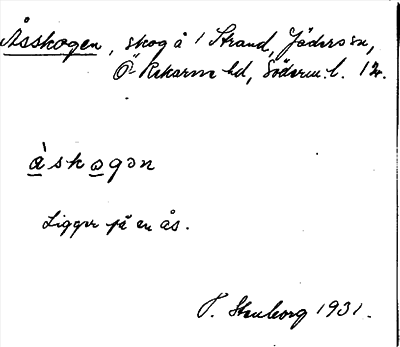 Åsskogen, skog å 1/ Strand, Jäders sn,
Ö. Rekarne hd, Söderm. l. 12.
åskogən
Ligger på en ås.
P. Stenborg 1931.